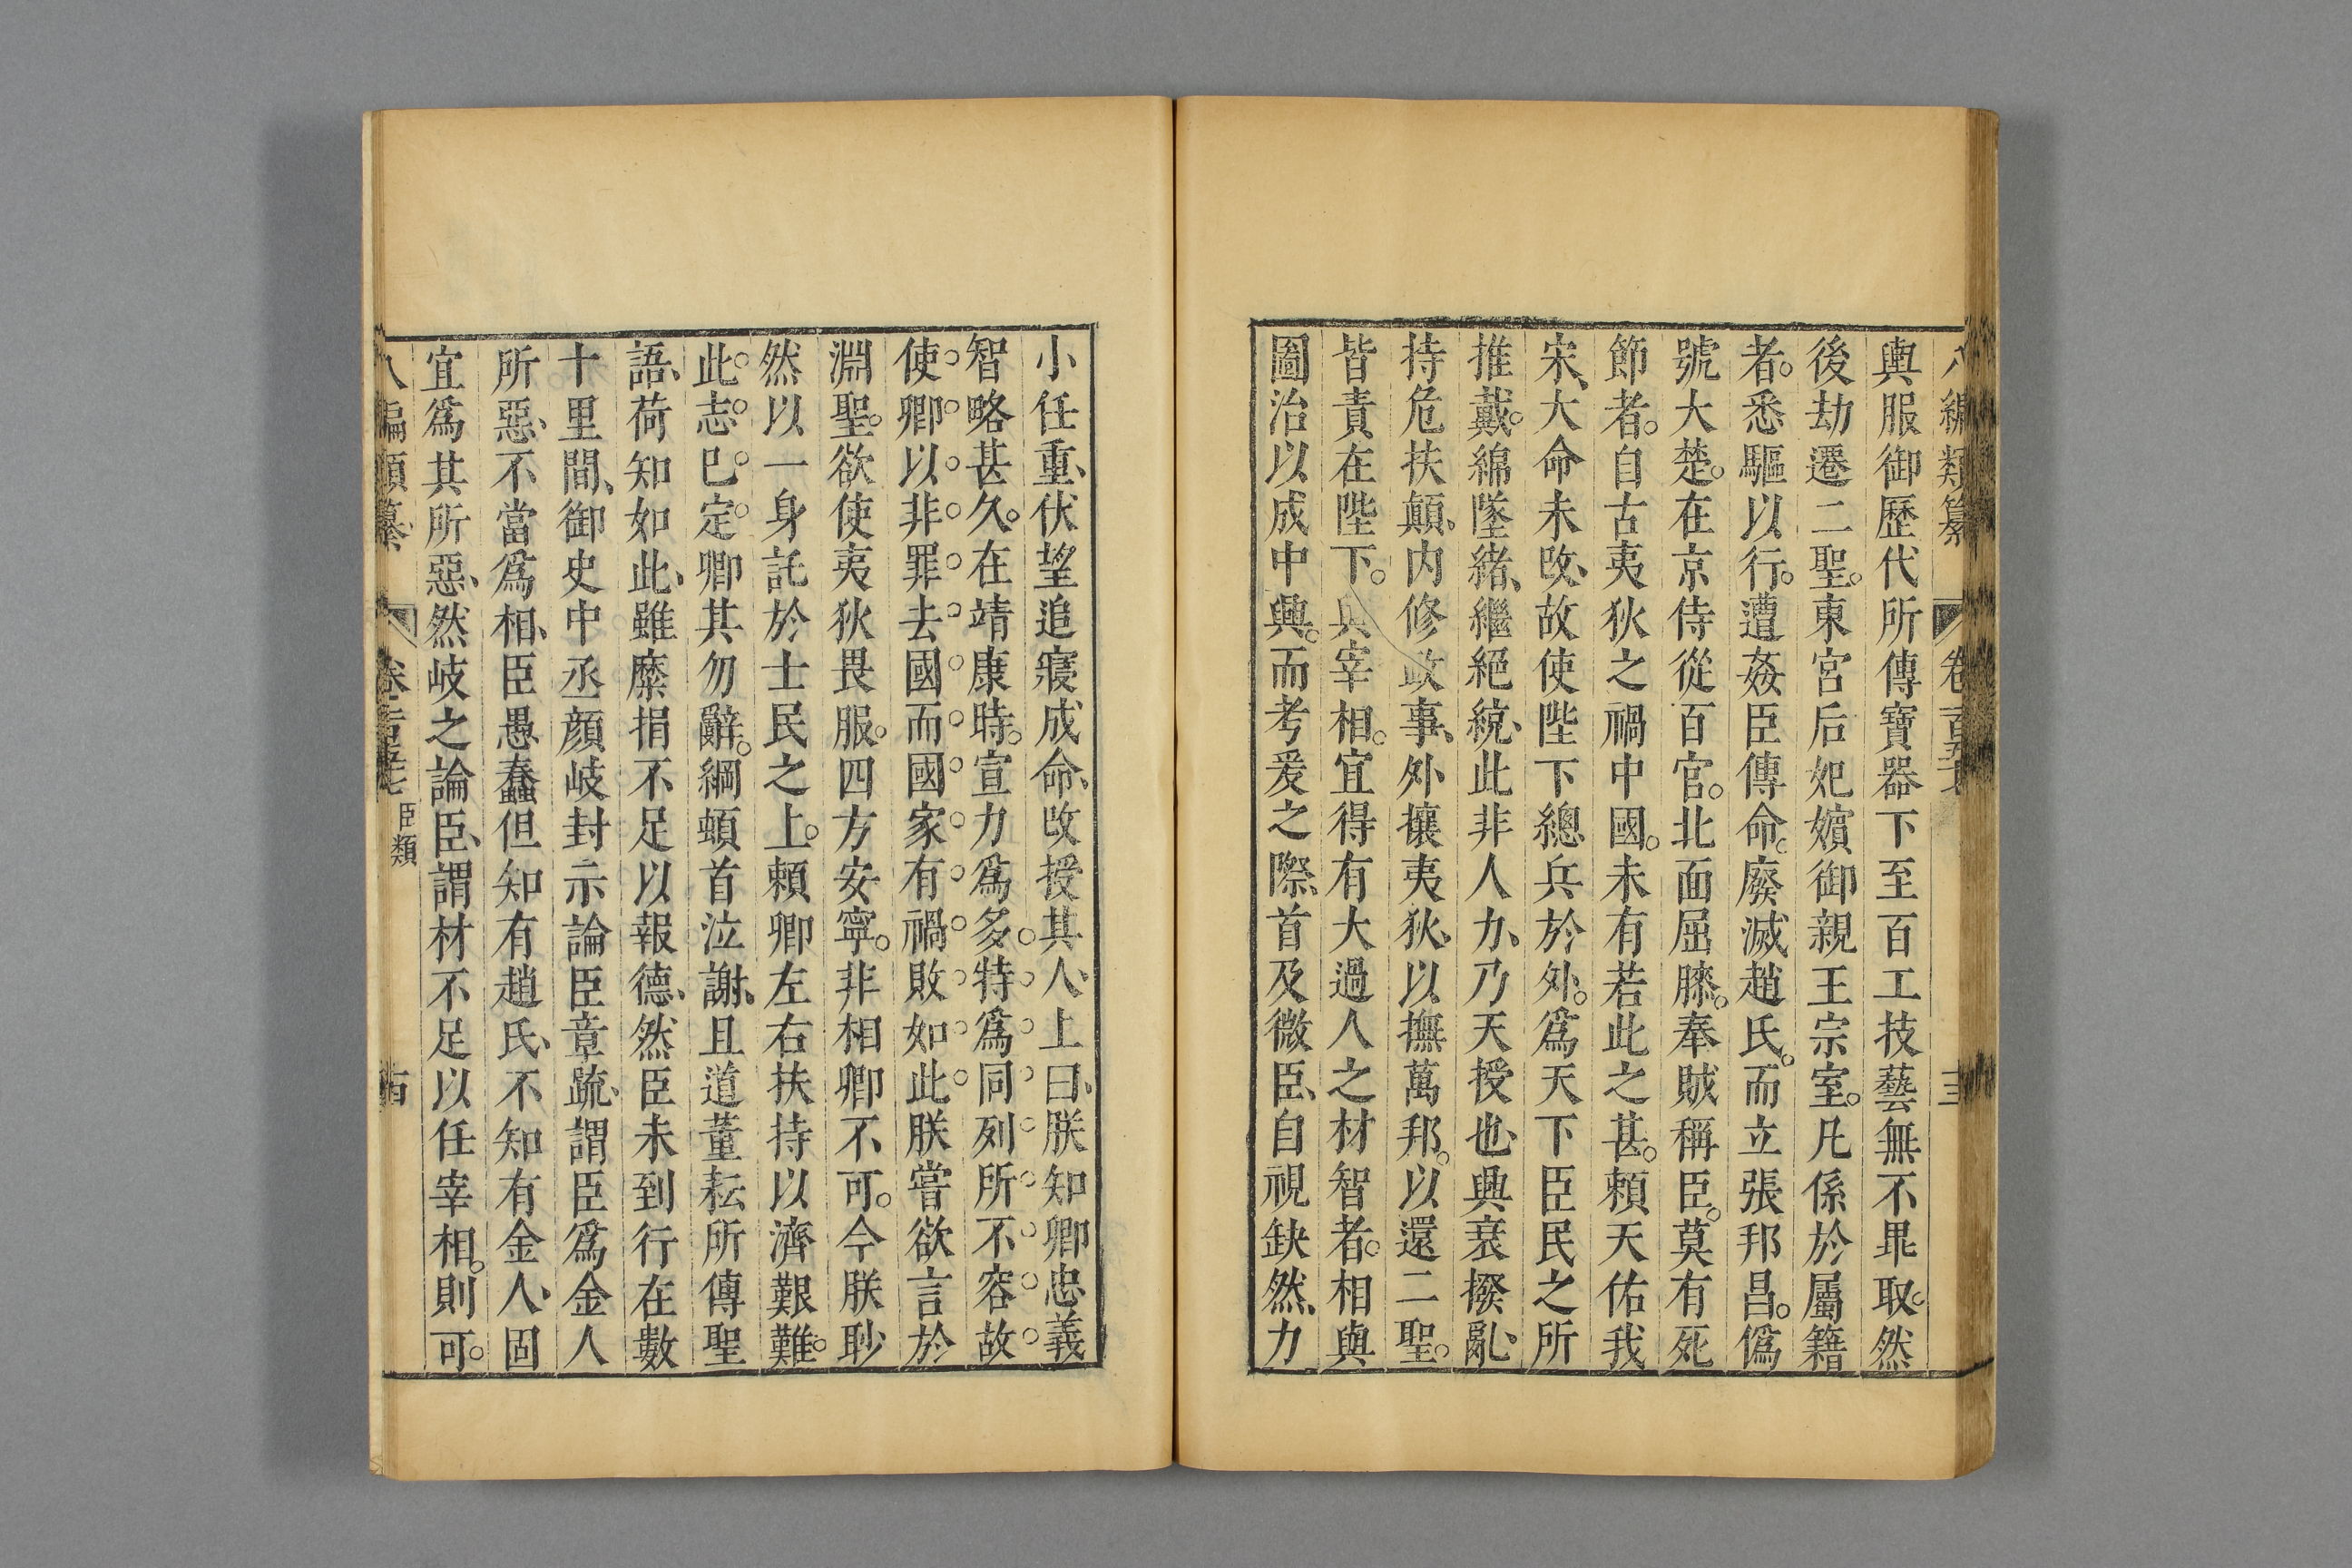 八編類纂 卷一百五十七
輿服御歷代所傳寶器下至百工技藝無不畢取。然
後劫遷二聖。東宮后妃嬪御親王宗室。凡係於屬籍
者。悉驅以行。遭姦臣傳命。廢滅趙氏。而立張邦昌。僞
號大楚。在京侍從百官。北面屈膝。奉賊稱臣。莫有死
節者。自古夷狄之禍中國。未有若此之甚。賴天佑我
宋、大命未改、故使陛下總兵於外。爲天下臣民之所
推戴。綿墜緒、繼絕統、此非人力、乃天授也、興衰撥亂、
持危扶顛、内修政事、外攘夷狄、以撫萬邦。以還二聖。
皆責在陛下。與宰相。宜得有大過人之材智者。相與
圖治以成中興。而考爰之際、首及微臣、自視缺然、力
小任重、伏望追寢成命、改授其人、上曰、朕知卿忠義
智略甚久。在靖康時。宣力爲多。特爲同列所不容。故
使卿以非罪去國而國家有禍敗如此。朕嘗欲言於
淵聖。欲使夷狄畏服。四方安寧。非相卿不可。今朕眇
然以一身託於士民之上。賴卿左右扶持以濟艱難。
此志巳定。卿其勿辭。綱頓首泣謝、且道董耘所傳聖
語、荷知如此、雖糜捐不足以報德、然臣未到行在數
十里間、御史中丞顔岐封示論臣章疏、謂臣爲金人
所惡、不當爲相、臣愚蠢但知有趙氏、不知有金人、固
宜爲其所惡、然岐之論臣、謂材不足以任宰相。則可。
八編類纂 卷一百五十七 臣類